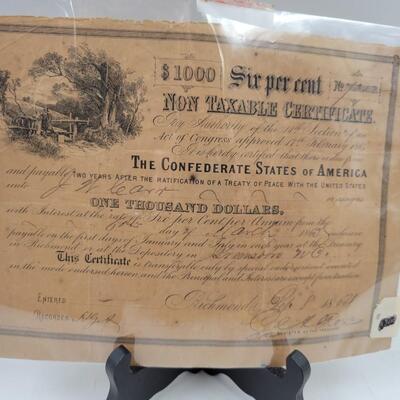 $1000 Six per cent No
NON TAXABLE CERTIFICATE.
By Authority of the 14th Section of an
Act of Congress approved 17th February 1864
It is hereby certified that there is due from
THE CONFEDERATE STATES OF AMERICA
and payable TWO YEARS AFTER THE RATIFICATION OF A TREATY OF PEACE WITH THE UNITED STATES
unto J W Carr or assigns
ONE THOUSAND DOLLARS,
with Interest at the rate of Six per Cent per Annum from the
day of inclusive
payable on the first days of January and July in each year at the Treasury
in Richmond, or at the Depository in N.C.
This Certificate is transferable only by special endorsement
in the mode endorsed hereon and the Principal and Interest are exempt from taxation
Richmond 8 186
ENTERED
RECORDED
REGISTER OF THE TREASURY